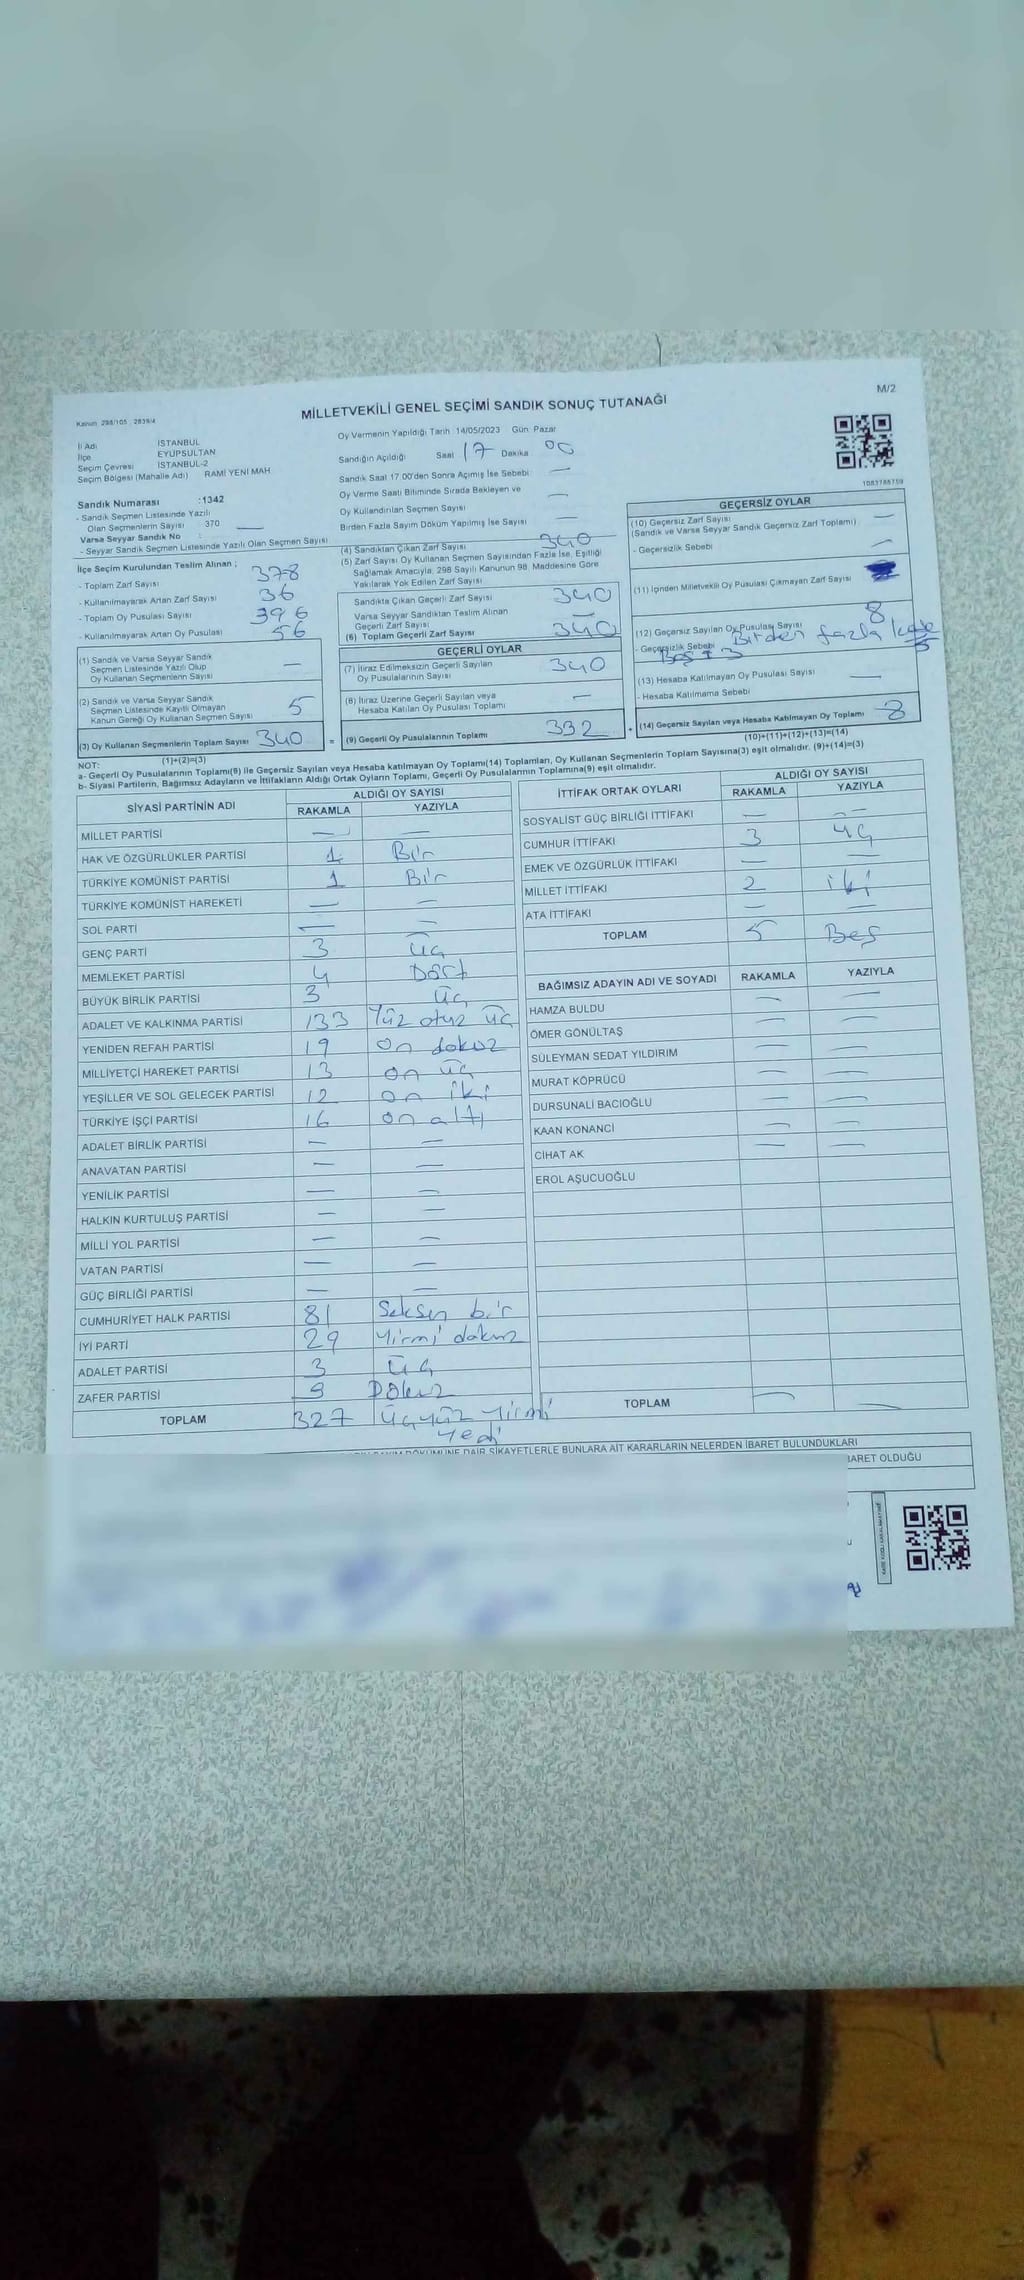 M/2
MİLLETVEKİLİ GENEL SEÇİMİ SANDIK SONUÇ TUTANAĞI
Kanun 298/105 2839/4
İl Adı İSTANBUL
İlçe EYÜPSULTAN
Seçim Çevresi İSTANBUL-2
Seçim Bölgesi (Mahalle Adı) RAMİ YENİ MAH
Sandık Numarası :1342
- Sandık Seçmen Listesinde Yazılı
Olan Seçmenlerin Sayısı 370 —
Varsa Seyyar Sandık No
- Seyyar Sandık Seçmen Listesinde Yazılı Olan Seçmen Sayısı
Oy Vermenin Yapıldığı Tarih 14/05/2023 Gün: Pazar
Sandığın Açıldığı Saat 17 Dakika 00
Sandık Saat 17.00'den Sonra Açılmış İse Sebebi —
Oy Verme Saati Bitiminde Sırada Bekleyen ve
Oy Kullandırılan Seçmen Sayısı —
Birden Fazla Sayım Döküm Yapılmış İse Sayısı —
1083785759
İlçe Seçim Kurulundan Teslim Alınan ;
- Toplam Zarf Sayısı 378
- Kullanılmayarak Artan Zarf Sayısı 36
- Toplam Oy Pusulası Sayısı 396
- Kullanılmayarak Artan Oy Pusulası 56
(1) Sandık ve Varsa Seyyar Sandık
Seçmen Listesinde Yazılı Olup
Oy Kullanan Seçmenlerin Sayısı —
(2) Sandık ve Varsa Seyyar Sandık
Seçmen Listesinde Kayıtlı Olmayan
Kanun Gereği Oy Kullanan Seçmen Sayısı 5
(3) Oy Kullanan Seçmenlerin Toplam Sayısı 340
(1)+(2)=(3)
(4) Sandıktan Çıkan Zarf Sayısı 340
(5) Zarf Sayısı Oy Kullanan Seçmen Sayısından Fazla İse, Eşitliği
Sağlamak Amacıyla, 298 Sayılı Kanunun 98. Maddesine Göre
Yakılarak Yok Edilen Zarf Sayısı
Sandıkta Çıkan Geçerli Zarf Sayısı 340
Varsa Seyyar Sandıktan Teslim Alınan
Geçerli Zarf Sayısı —
(6) Toplam Geçerli Zarf Sayısı 340
GEÇERLİ OYLAR
(7) İtiraz Edilmeksizin Geçerli Sayılan
Oy Pusulalarının Sayısı 340
(8) İtiraz Üzerine Geçerli Sayılan veya
Hesaba Katılan Oy Pusulası Toplamı —
(9) Geçerli Oy Pusulalarının Toplamı 332
GEÇERSİZ OYLAR
(10) Geçersiz Zarf Sayısı —
(Sandık ve Varsa Seyyar Sandık Geçersiz Zarf Toplamı)
- Geçersizlik Sebebi —
(11) İçinden Milletvekili Oy Pusulası Çıkmayan Zarf Sayısı
(12) Geçersiz Sayılan Oy Pusulası Sayısı 8
- Geçersizlik Sebebi Birden fazla 5
Boş + 3
(13) Hesaba Katılmayan Oy Pusulası Sayısı —
- Hesaba Katılmama Sebebi
(14) Geçersiz Sayılan veya Hesaba Katılmayan Oy Toplamı 8
(10)+(11)+(12)+(13)=(14)
NOT:
a- Geçerli Oy Pusulalarının Toplamı(9) ile Geçersiz Sayılan veya Hesaba katılmayan Oy Toplamı(14) Toplamları, Oy Kullanan Seçmenlerin Toplam Sayısına(3) eşit olmalıdır. (9)+(14)=(3)
b- Siyasi Partilerin, Bağımsız Adayların ve İttifakların Aldığı Ortak Oyların Toplamı, Geçerli Oy Pusulalarının Toplamına(9) eşit olmalıdır.
SİYASİ PARTİNİN ADI ALDIĞI OY SAYISI
RAKAMLA YAZIYLA
MİLLET PARTİSİ — —
HAK VE ÖZGÜRLÜKLER PARTİSİ 1 Bir
TÜRKİYE KOMÜNİST PARTİSİ 1 Bir
TÜRKİYE KOMÜNİST HAREKETİ — —
SOL PARTİ — —
GENÇ PARTİ 3 üç
MEMLEKET PARTİSİ 4 Dört
BÜYÜK BİRLİK PARTİSİ 3 üç
ADALET VE KALKINMA PARTİSİ 133 Yüz otuz üç
YENİDEN REFAH PARTİSİ 19 on dokuz
MİLLİYETÇİ HAREKET PARTİSİ 13 on üç
YEŞİLLER VE SOL GELECEK PARTİSİ 12 on iki
TÜRKİYE İŞÇİ PARTİSİ 16 on altı
ADALET BİRLİK PARTİSİ — —
ANAVATAN PARTİSİ — —
YENİLİK PARTİSİ — —
HALKIN KURTULUŞ PARTİSİ — —
MİLLİ YOL PARTİSİ — —
VATAN PARTİSİ — —
GÜÇ BİRLİĞİ PARTİSİ — —
CUMHURİYET HALK PARTİSİ 81 Seksen bir
İYİ PARTİ 29 Yirmi dokuz
ADALET PARTİSİ 3 üç
ZAFER PARTİSİ 9 Dokuz
TOPLAM 327 üçyüz yirmi
yedi
İTTİFAK ORTAK OYLARI ALDIĞI OY SAYISI
RAKAMLA YAZIYLA
SOSYALİST GÜÇ BİRLİĞİ İTTİFAKI — —
CUMHUR İTTİFAKI 3 üç
EMEK VE ÖZGÜRLÜK İTTİFAKI — —
MİLLET İTTİFAKI 2 iki
ATA İTTİFAKI — —
TOPLAM 5 Beş
BAĞIMSIZ ADAYIN ADI VE SOYADI RAKAMLA YAZIYLA
HAMZA BULDU — —
ÖMER GÖNÜLTAŞ — —
SÜLEYMAN SEDAT YILDIRIM — —
MURAT KÖPRÜCÜ — —
DURSUNALİ BACIOĞLU — —
KAAN KONANCİ — —
CİHAT AK — —
EROL AŞUCUOĞLU
TOPLAM — —
DÖKÜMÜNE DAİR ŞİKAYETLERLE BUNLARA AİT KARARLARIN NELERDEN İBARET BULUNDUKLARI
BARET OLDUĞU